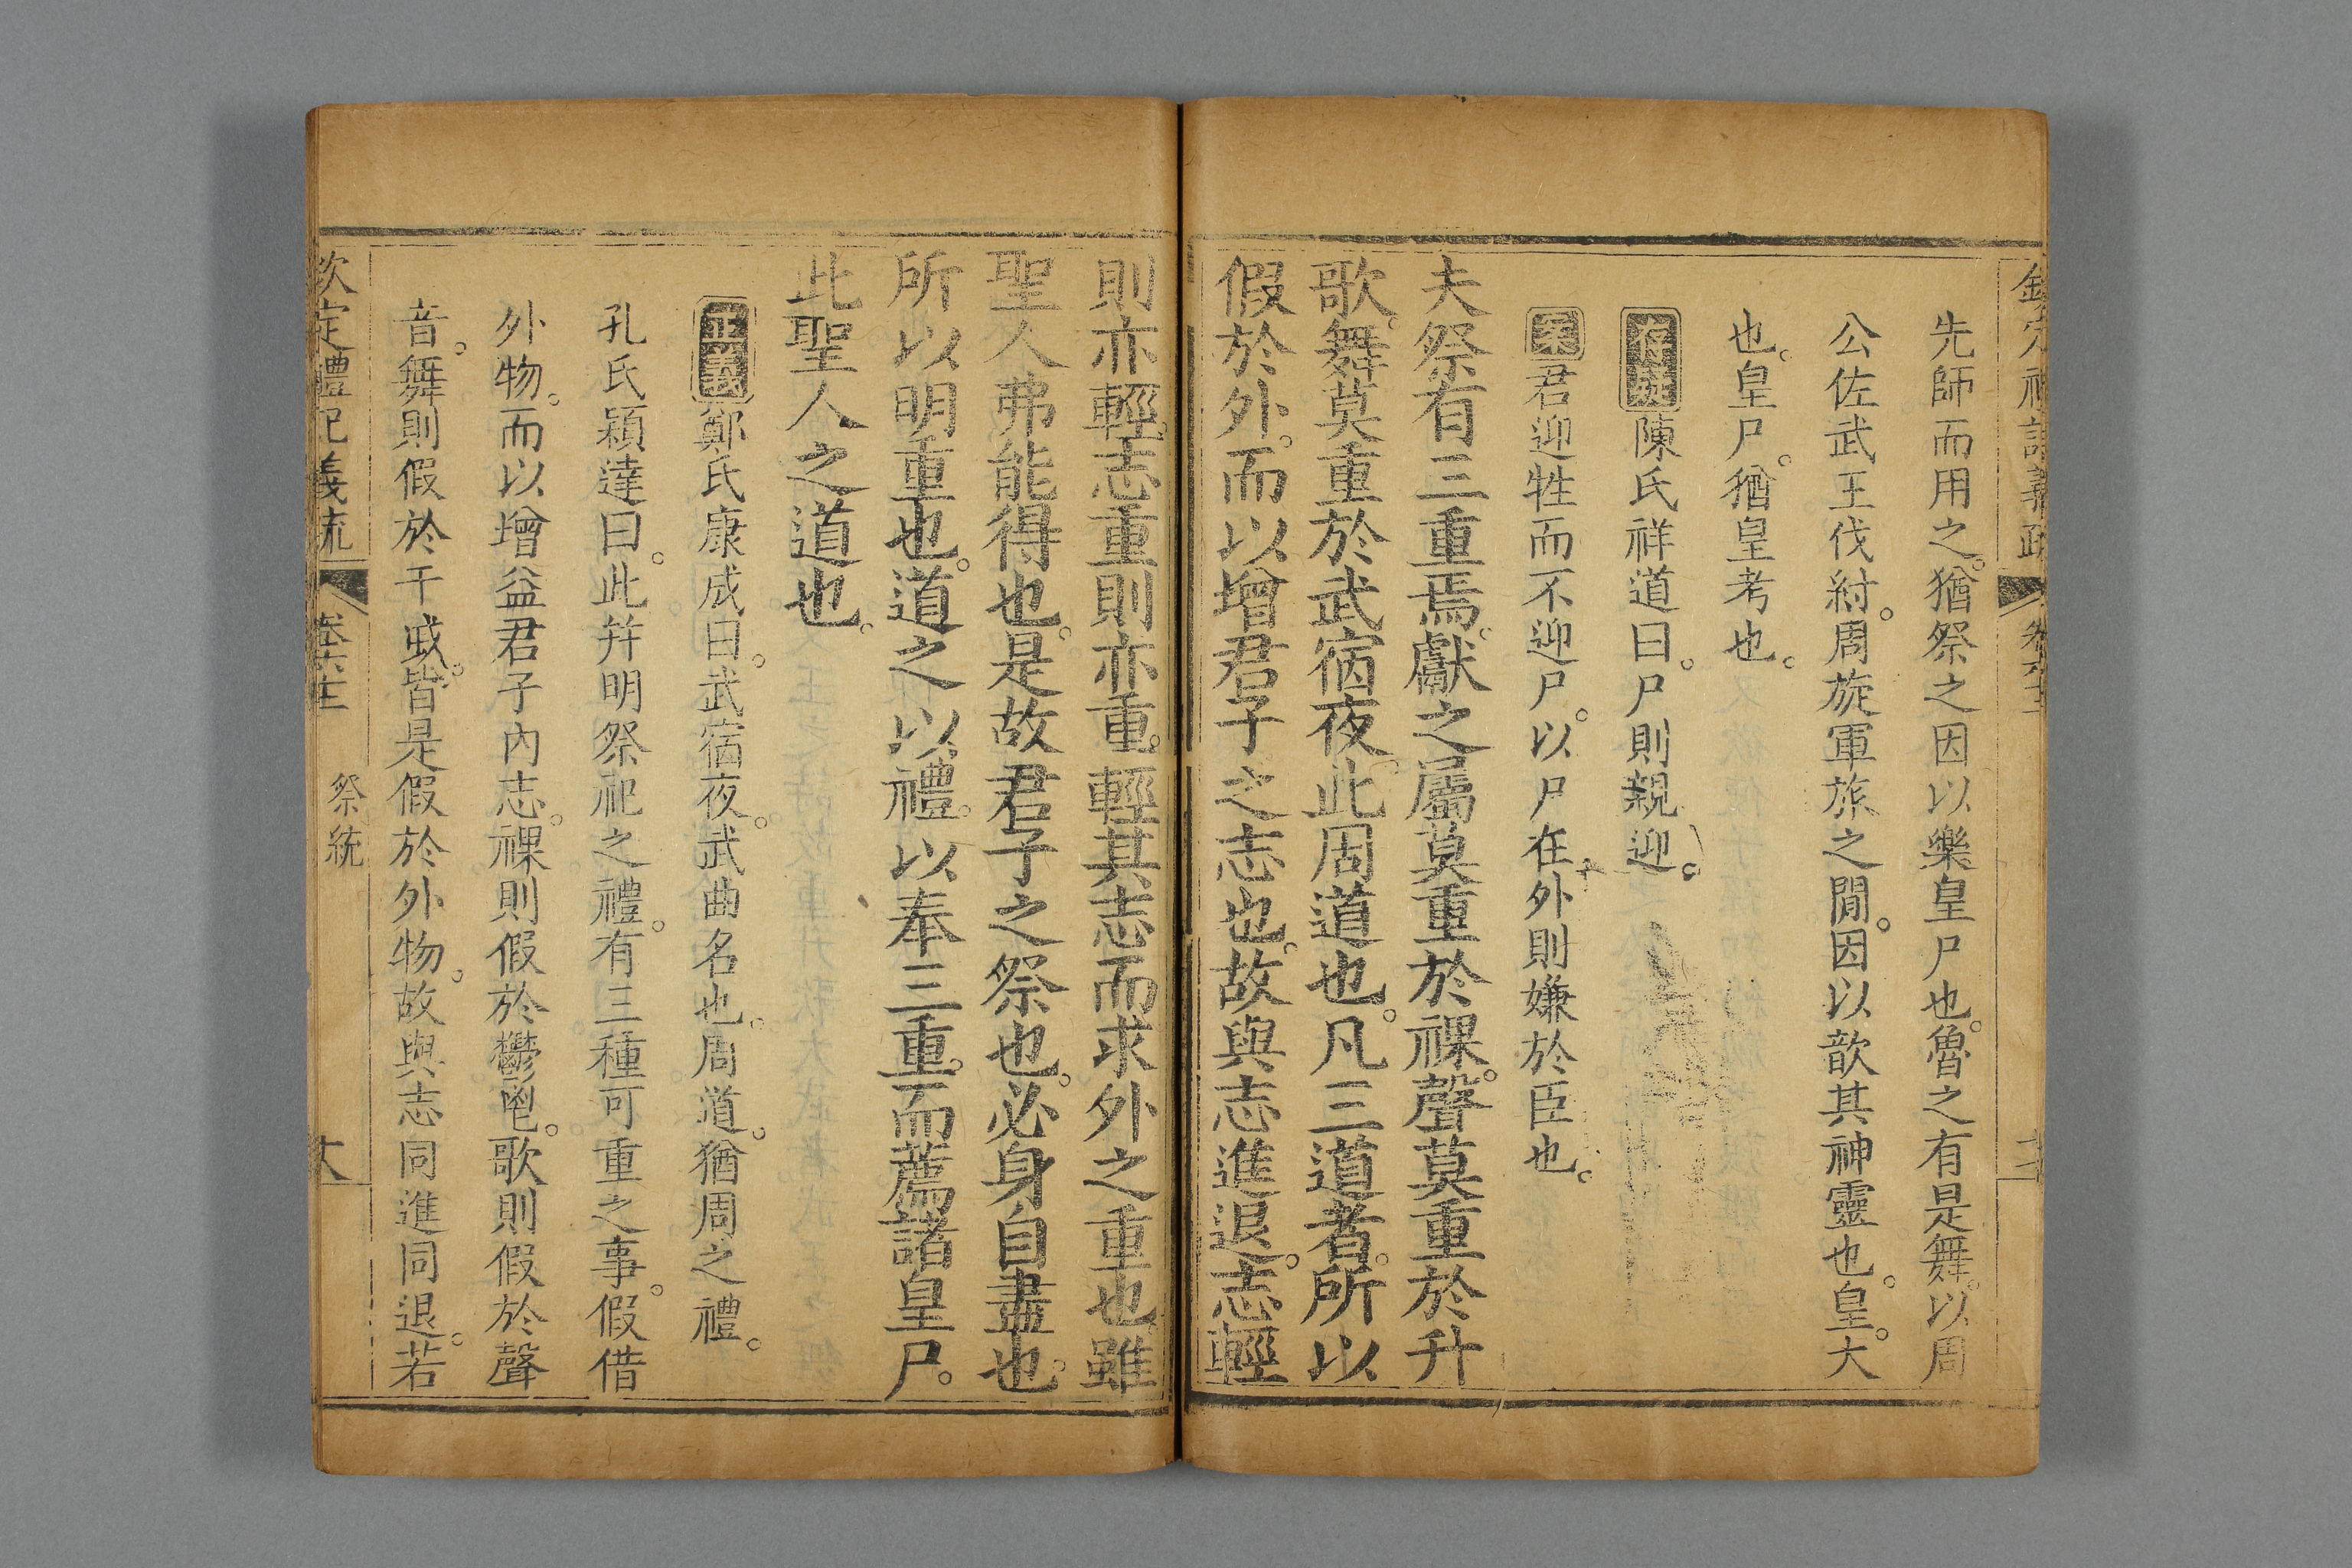 欽定禮記義疏 卷六十三
先師而用之。猶祭之因以樂皇尸也。魯之有是舞。以周
公佐武王伐紂。周旋軍旅之間。因以歆其神靈也。皇。大
也。皇尸。猶皇考也。
存異陳氏祥道曰。尸則親迎。
案君迎牲而不迎尸。以尸在外則嫌於臣也。
夫祭有三重焉。獻之屬莫重於祼。聲莫重於升
歌。舞莫重於武宿夜。此周道也。凡三道者。所以
假於外。而以增君子之志也。故與志進退。志輕
則亦輕。志重則亦重。輕其志而求外之重也。雖
聖人弗能得也。是故君子之祭也。必身自盡也。
所以明重也。道之以禮。以奉三重。而薦諸皇尸。
此聖人之道也。
正義鄭氏康成曰。武宿夜。武曲名也。周道。猶周之禮。
孔氏穎達曰。此幷明祭祀之禮。有三種可重之事。假借
外物。而以增益君子內志。祼則假於鬱鬯。歌則假於聲
音。舞則假於干戚。皆是假於外物。故與志同進同退。若
欽定禮記義疏 卷六十三 祭統